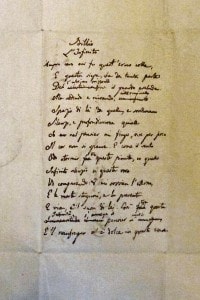 Idillio
L'Infinito
Sempre caro mi fu quest'ermo colle,
E questa siepe, che da tanta parte
Del
Ma sedendo e mirando,
Spazio di là da quella, e sovrumani
Silenzi, e profondissima quiete
Io nel pensier mi fingo, ove per poco
Il cor non si spaura. E come il vento
Odo stormir tra queste piante, io quello
Infinito silenzio a questa voce
Vo comparando: e mi sovvien l'eterno,
E le morte stagioni, e la presente
E viva, e 'l suon di lei. Così tra questa
E 'l naufragar m'è dolce in questo mare.